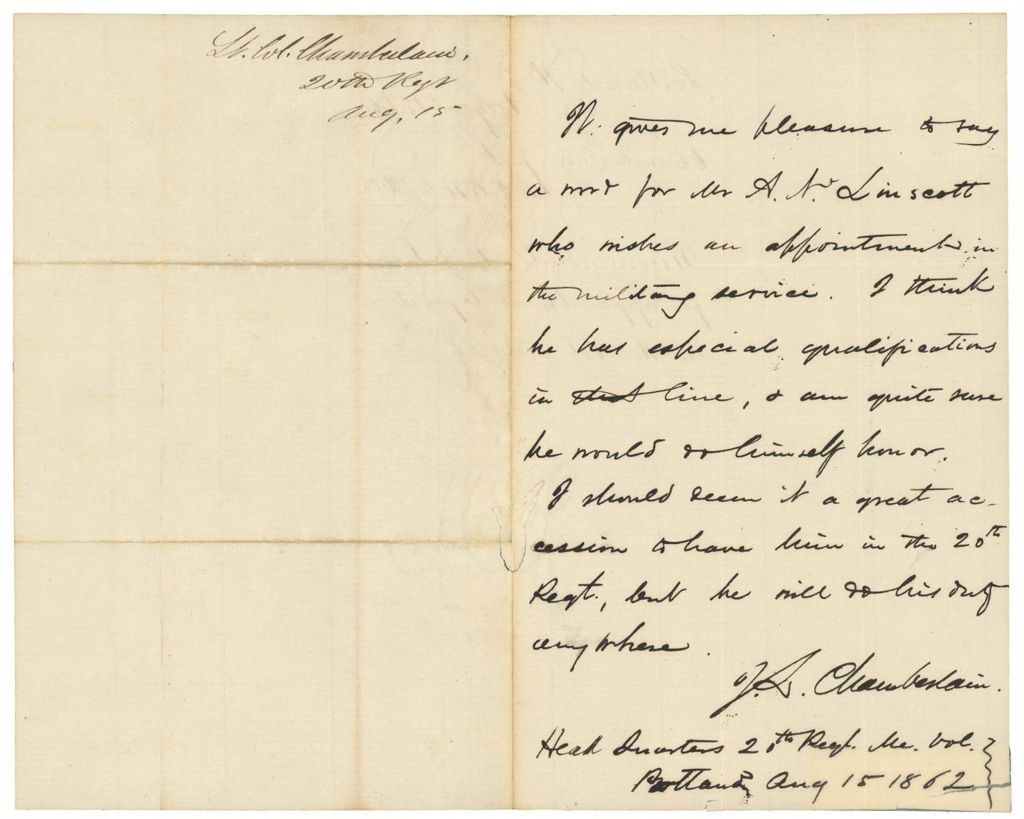 Lt. Col. Chamberlain.
20th Regt
Aug. 15
It gives me pleasure to say
a word for Mr A. N. Linscott
who wishes an appointment in
the military service. I think
he has especial qualifications
in that line, & am quite sure
he would do himself honor.
I should deem it a great ac-
cession to have him in the 20th
Regt., but he will do his duty
anywhere.
J. L. Chamberlain.
Head Quarters 20th Regt. Me. Vol.
Portland Aug 15 1862